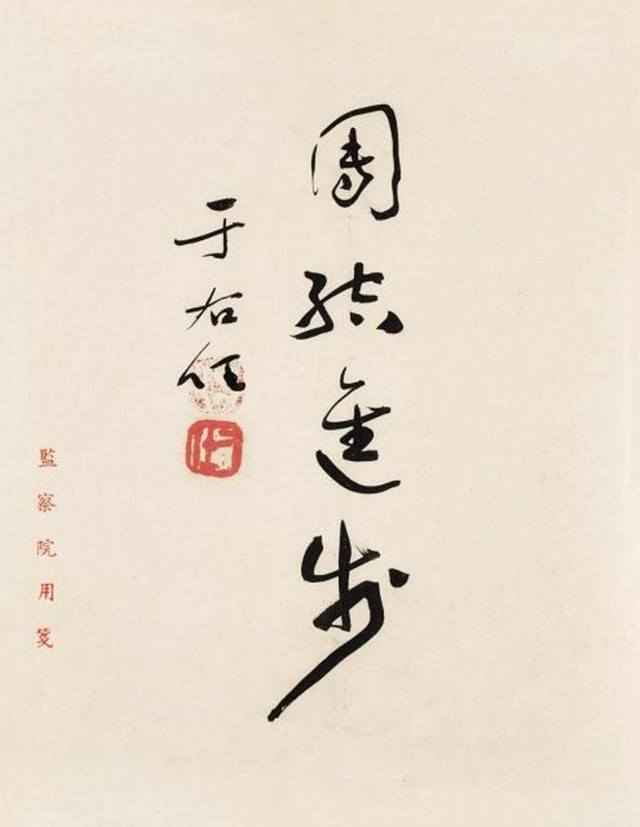 團結進步
于右任
監察院用箋